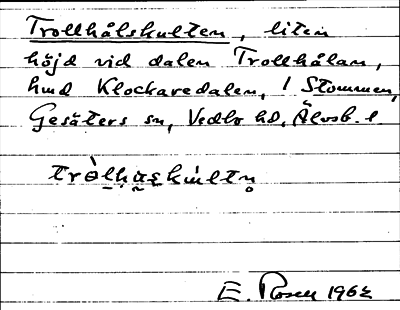 Trollhålskulten, liten
höjd vid dalen Trollhålan,
hmd Klockaredalen, 1 Stommen,
Gesäters sn, Vedbo hd, Älvsb. l.
E. Rosen 1962